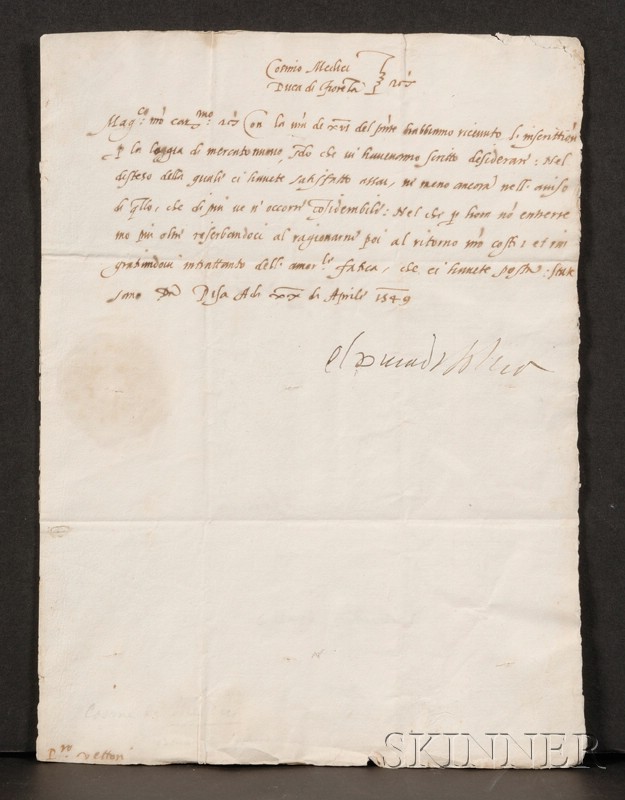 Cosmo Medici
Duca di Fiorẽza
Mag.co mõ car.mo Con la vrã di XVI del pñte habbiamo ricevuto l. inscrittioni
p la loggia di mercato nuovo, che vi havevamo scritto desiderare: Nel
disteso della quale ci havete satisfatto assai, ne meno ancora nell. aviso
di q̃llo, che di più ve n' occorre : Nel che p hora nõ entrerre
mo più oltre reserbandoci al ragionarne poi al ritorno nrõ costì; et rin
gratiandovi intrattanto dell. amor.le fatica, che ci havete posta: State
sano Da Pisa Adi XX di Aprile 1549
el duca di
P.ro Vettori
SKINNER